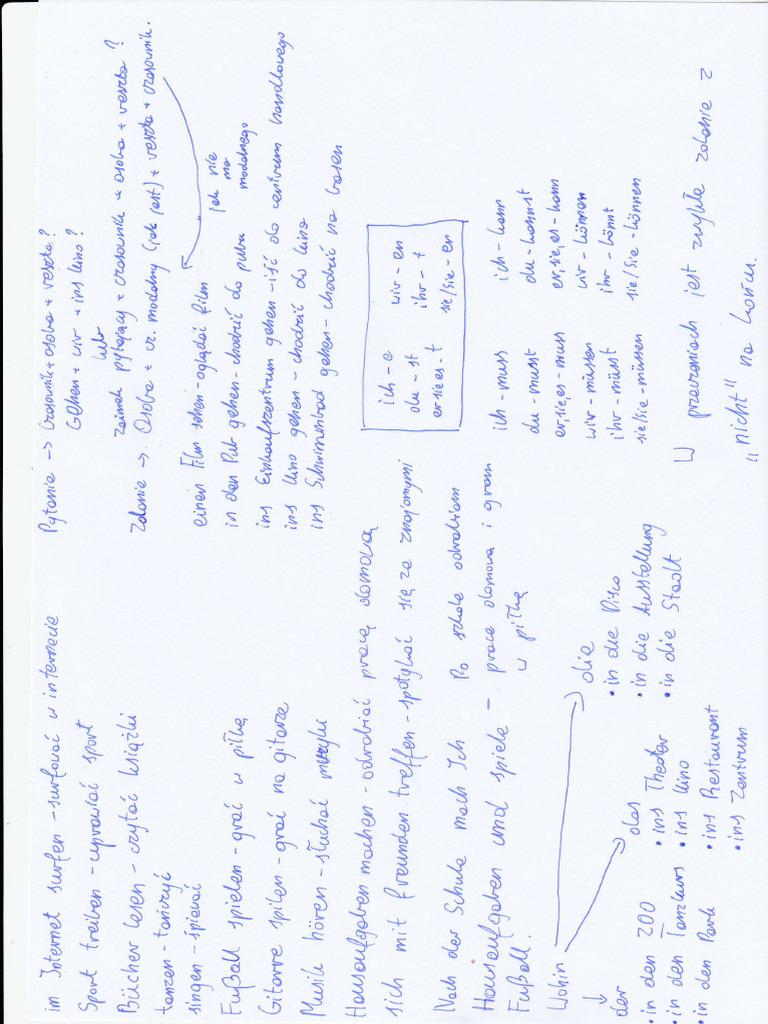 im Internet surfen - surfować w internecie
Sport treiben - uprawiać sport
Bücher lesen - czytać książki
tanzen - tańczyć
singen - śpiewać
Fußall spielen - grać w piłkę
Gitorre spilen - grać na gitarze
Musik hören - słuchać muzyki
Hausaufgaben machen - odrabiać pracę domową
sich mit freunden treffen - spotykać się ze znajomymi
Nach der Schule mach Ich
Hausaufgaben und spiele -
Fußall.
Po szkole odrabiam
prace domowa i gram
w piłkę
Wohin
der
• in den ZOO
• in den Tanzkurs
• in den Park
das
• ins Theater
• ins Kino
• ins Restaurant
• ins Zentrum
die
• in die Disco
• in die Ausstellung
• in die Stadt
Pytanie -> Czasownik + osoba + reszta?
Gehen + wir + ins kino?
lub
zaimek pytający + czasownik + osoba + reszta?
Zdanie -> Osoba + cz. modalny (jak jest) + reszta + czasownik.
jak nie
ma
modalnego
einen Film sehen - oglądać film
in den Pub gehen - chodzić do pubu
ins Einkaufszentrum gehen - iść do centrum handlowego
ins kino gehen - chodzić do kina
ins Schwimmbad gehen - chodzić na basen
ich - e
du - st
er sie es - t
wir - en
ihr - t
sie/Sie - en
ich - muss
du - musst
er, sie, es - muss
wir - müssen
ihr - müsst
sie/Sie - müssen
ich - kann
du - kannst
er, sie, es - kann
wir - können
ihr - könnt
sie/Sie - können
W przeczeniach jest zwykłe zdanie z
"nicht" na końcu.